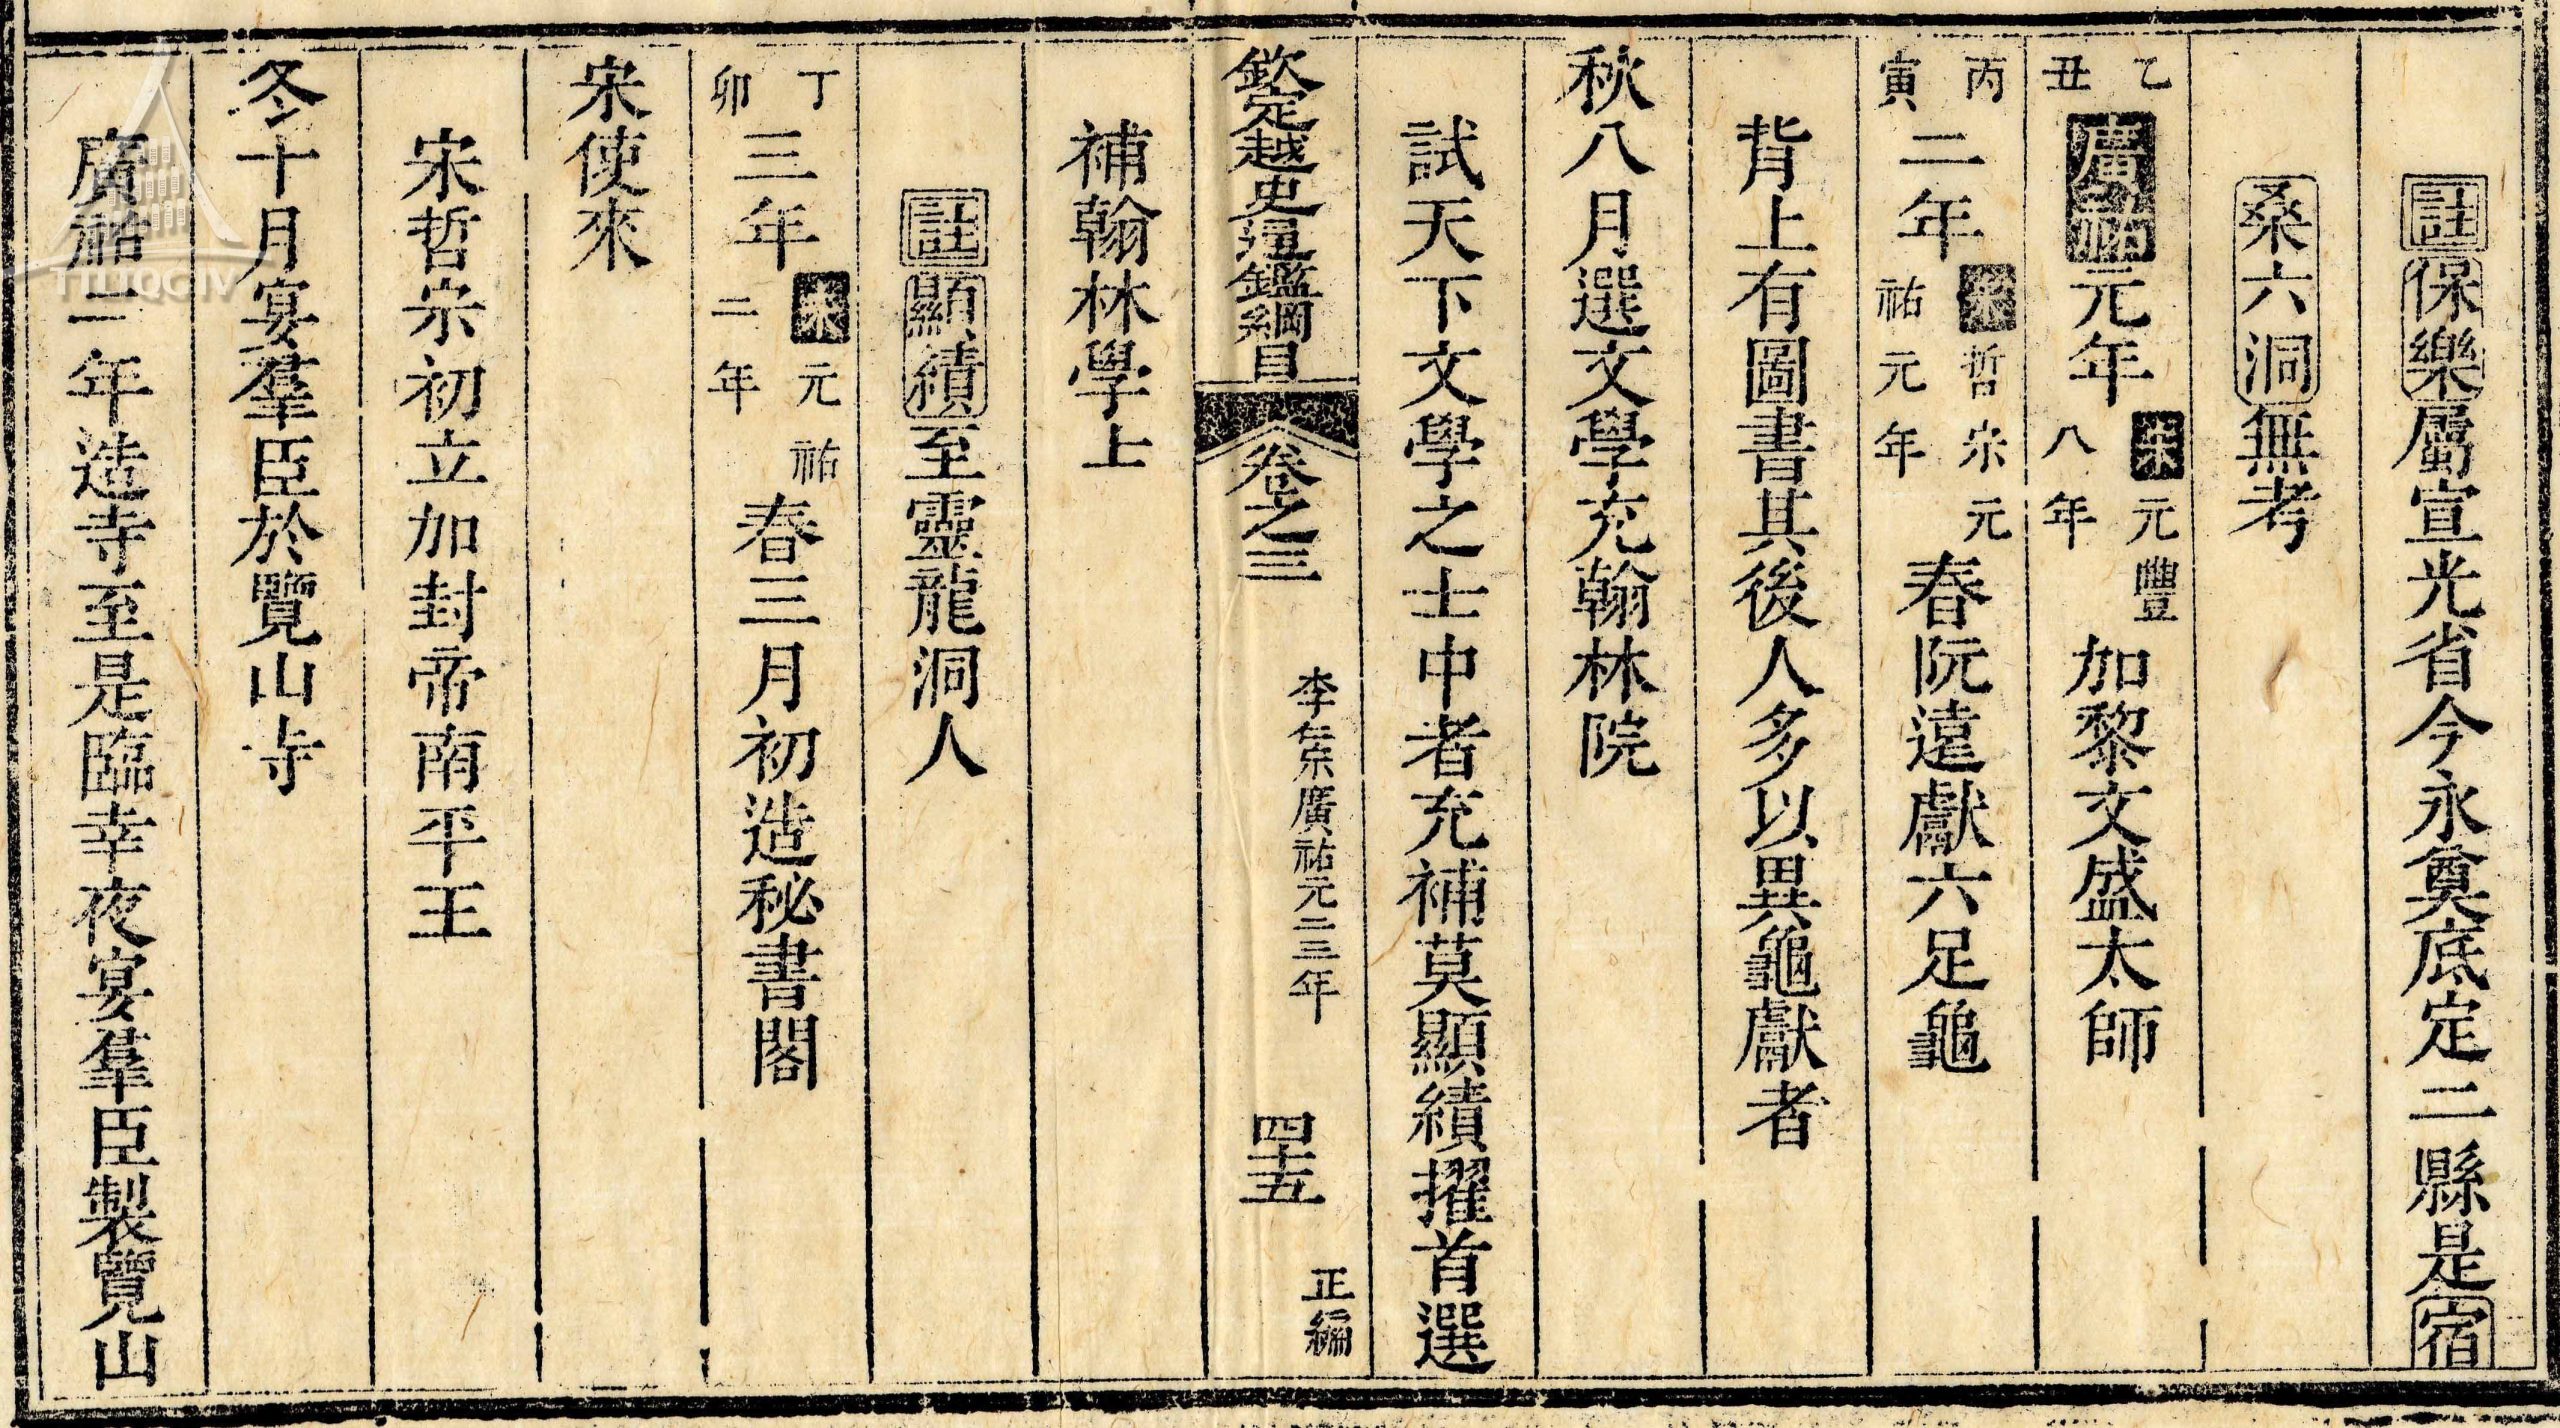 註保樂屬宣光省今永奠底定二縣是宿
桑六洞無考
乙丑廣祐元年宋元豐八年加黎文盛太師
丙寅二年宋哲宗元祐元年春阮遠獻六足龜
背上有圖書其後人多以異龜獻者
秋八月選文學充翰林院
試天下文學之士中者充補莫顯績擢首選
欽定越史通鑑綱目 卷之三 李仁宗廣祐元二三年 四十五 正編
補翰林學士
註顯績至靈龍洞人
丁卯三年宋元祐二年春三月初造秘書閣
宋使來
宋哲宗初立加封帝南平王
冬十月宴羣臣於覽山寺
廣祐二年造寺至是臨幸夜宴羣臣製覽山
TTLTQGIV